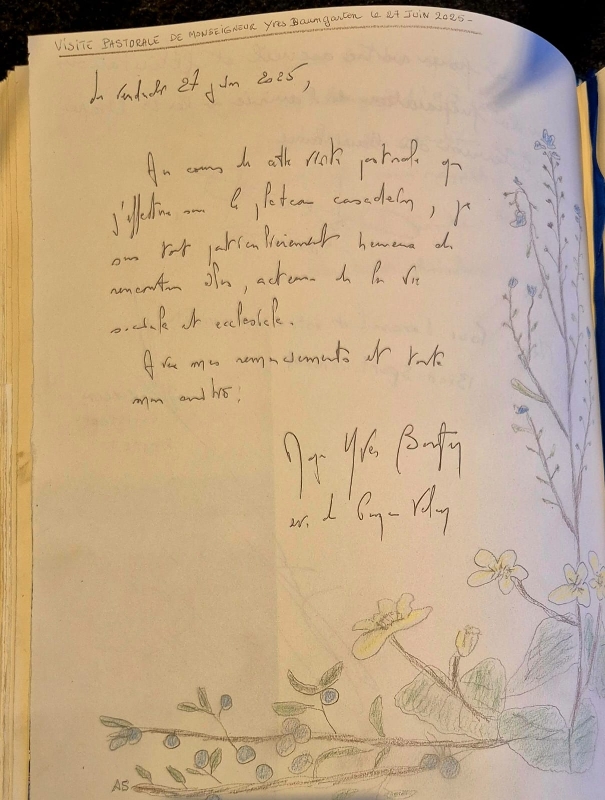 VISITE PASTORALE DE MONSEIGNEUR YVES BAUMGARTEN LE 27 JUIN 2025-
Le Vendredi 27 juin 2025,
Au cours de cette visite pastorale que
j'effectue sur le plateau casadéen, je
suis tout particulièrement heureux de
rencontrer élus, acteurs de la vie
sociale et ecclésiale.
Avec mes remerciements et toute
mon amitié!
Mgr Yves Baumgarten
év. du Puy en Velay
AS